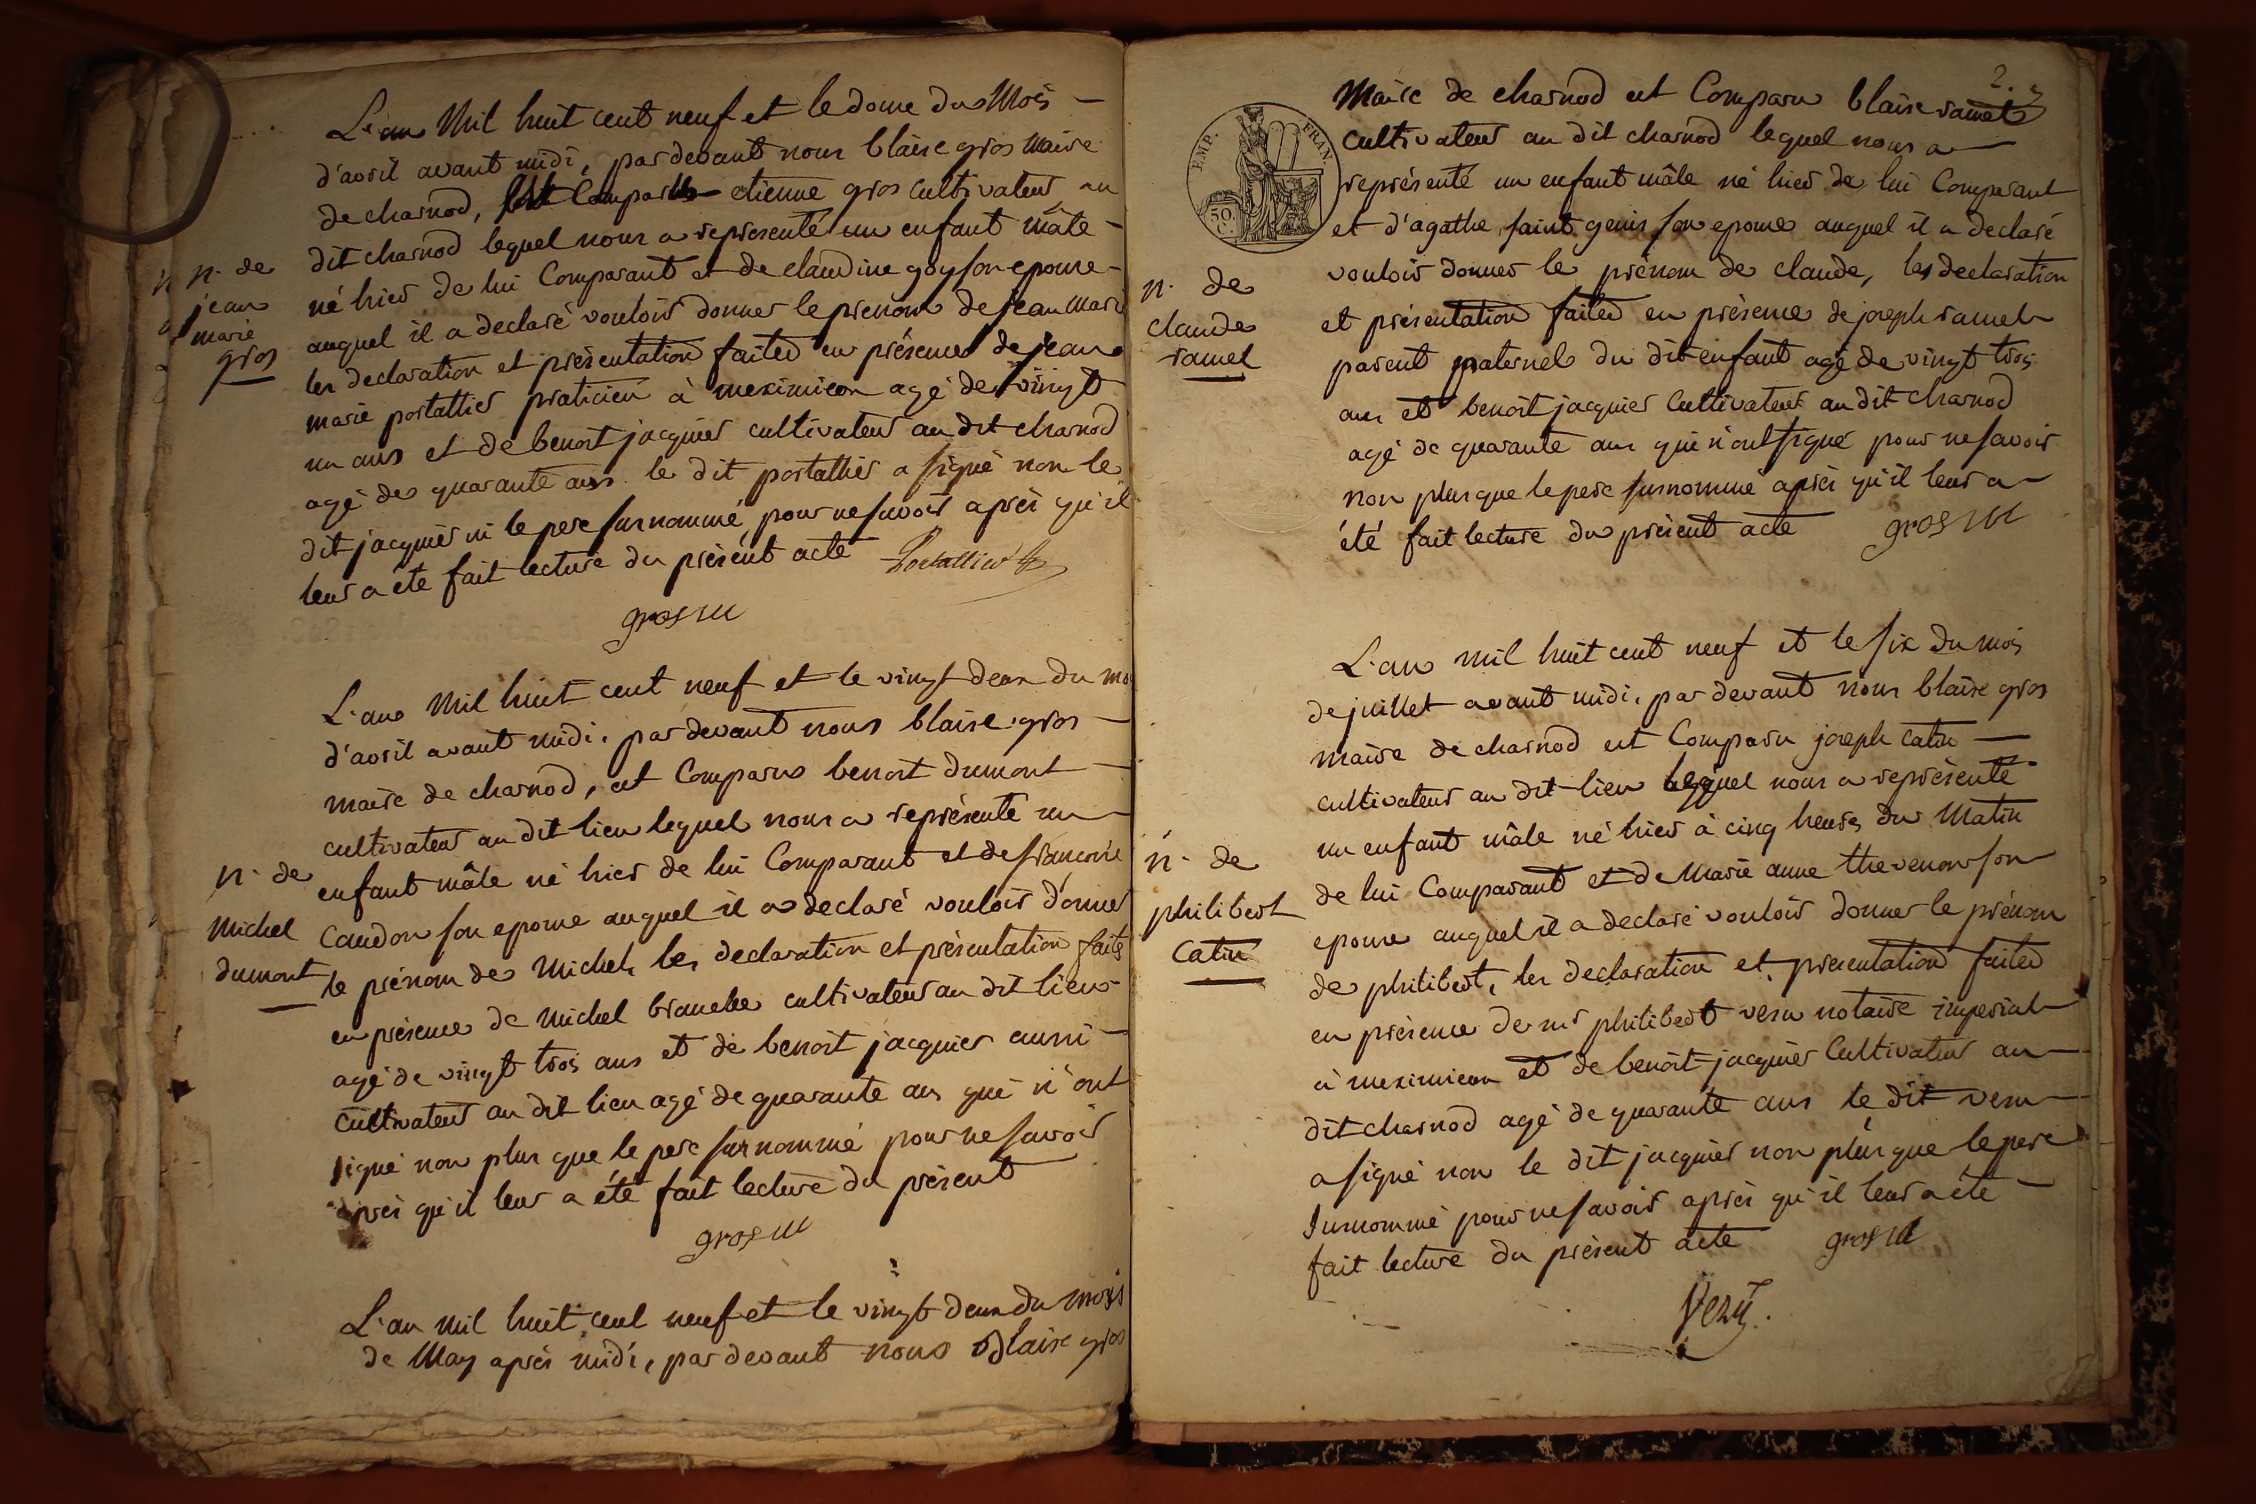 L'an Mil huit cent neuf et le douze du Mois
d'avril avant midi, pardevant nous blaise gros Maire
de charnod, est Comparu etienne gros cultivateur au
dit charnod lequel nous a representé un enfant mâle
né hier de lui Comparant et de claudine goy son epouse
auquel il a declaré vouloir donner le prenom de jean marie
les declaration et présentation faites en présence de jean
marie portallier praticien à meximieux agé de vingt
un ans et de benoit jacquier cultivateur au dit charnod
agé de quarante ans. le dit portallier a signé non le
dit jacquier ni le pere surnommé pour ne savoir après qu'il
leur a été fait lecture du présent acte Portallier
gros m
n. de
jean
marie
gros
L'an Mil huit cent neuf et le vingt deux du mo
d'avril avant midi. par devant nous blaise gros
maire de charnod, est Comparu benoit dumont
cultivateur au dit lieu lequel nous a représenté un
enfant mâle né hier de lui Comparant et de françoise
Caudon son epouse auquel il a declaré vouloir donner
le prénom de Michel, les declaration et présentation faites
en présence de Michel branche cultivateur au dit lieu
agé de vingt trois ans et de benoit jacquier aussi
cultivateur au dit lieu agé de quarante ans qui n'ont
signé non plus que le pere surnommé pour ne savoir
après qu'il leur a été fait lecture du présent
gros m
n. de
Michel
dumont
L'an mil huit cent neuf et le vingt deux du mois
de May après midi, par devant nous Blaise gros
2.
Maire de charnod est Comparu blaise ramel
cultivateur au dit charnod lequel nous a
représenté un enfant mâle né hier de lui Comparant
et d'agathe saint genis son epouse auquel il a declaré
vouloir donner le prénom de claude, les declaration
et présentation faites en présence de joseph ramel
parent paternel du dit enfant agé de vingt trois
ans et benoit jacquier Cultivateur au dit charnod
agé de quarante ans qui n'ont signé pour ne savoir
non plus que le pere surnommé après qu'il leur a
été fait lecture du présent acte gros m
EMP. FRAN.
50.
C.
n. de
claude
ramel
L'an mil huit cent neuf et le six du mois
de juillet avant midi. par devant nous blaise gros
maire de charnod est Comparu joseph catin
cultivateur au dit lieu lequel nous a représenté
un enfant mâle né hier à cinq heures du Matin
de lui Comparant et de Marie anne thevenon son
epouse auquel il a declaré vouloir donner le prénom
de philibert, les declaration et présentation faites
en présence de mr philibert vezu notaire imperial
à meximieux et de benoit jacquier Cultivateur au
dit charnod agé de quarante ans le dit vezu
a signé non le dit jacquier non plus que le pere
surnommé pour ne savoir après qu'il leur a été
fait lecture du présent acte gros m
Vezu
n. de
philibert
Catin